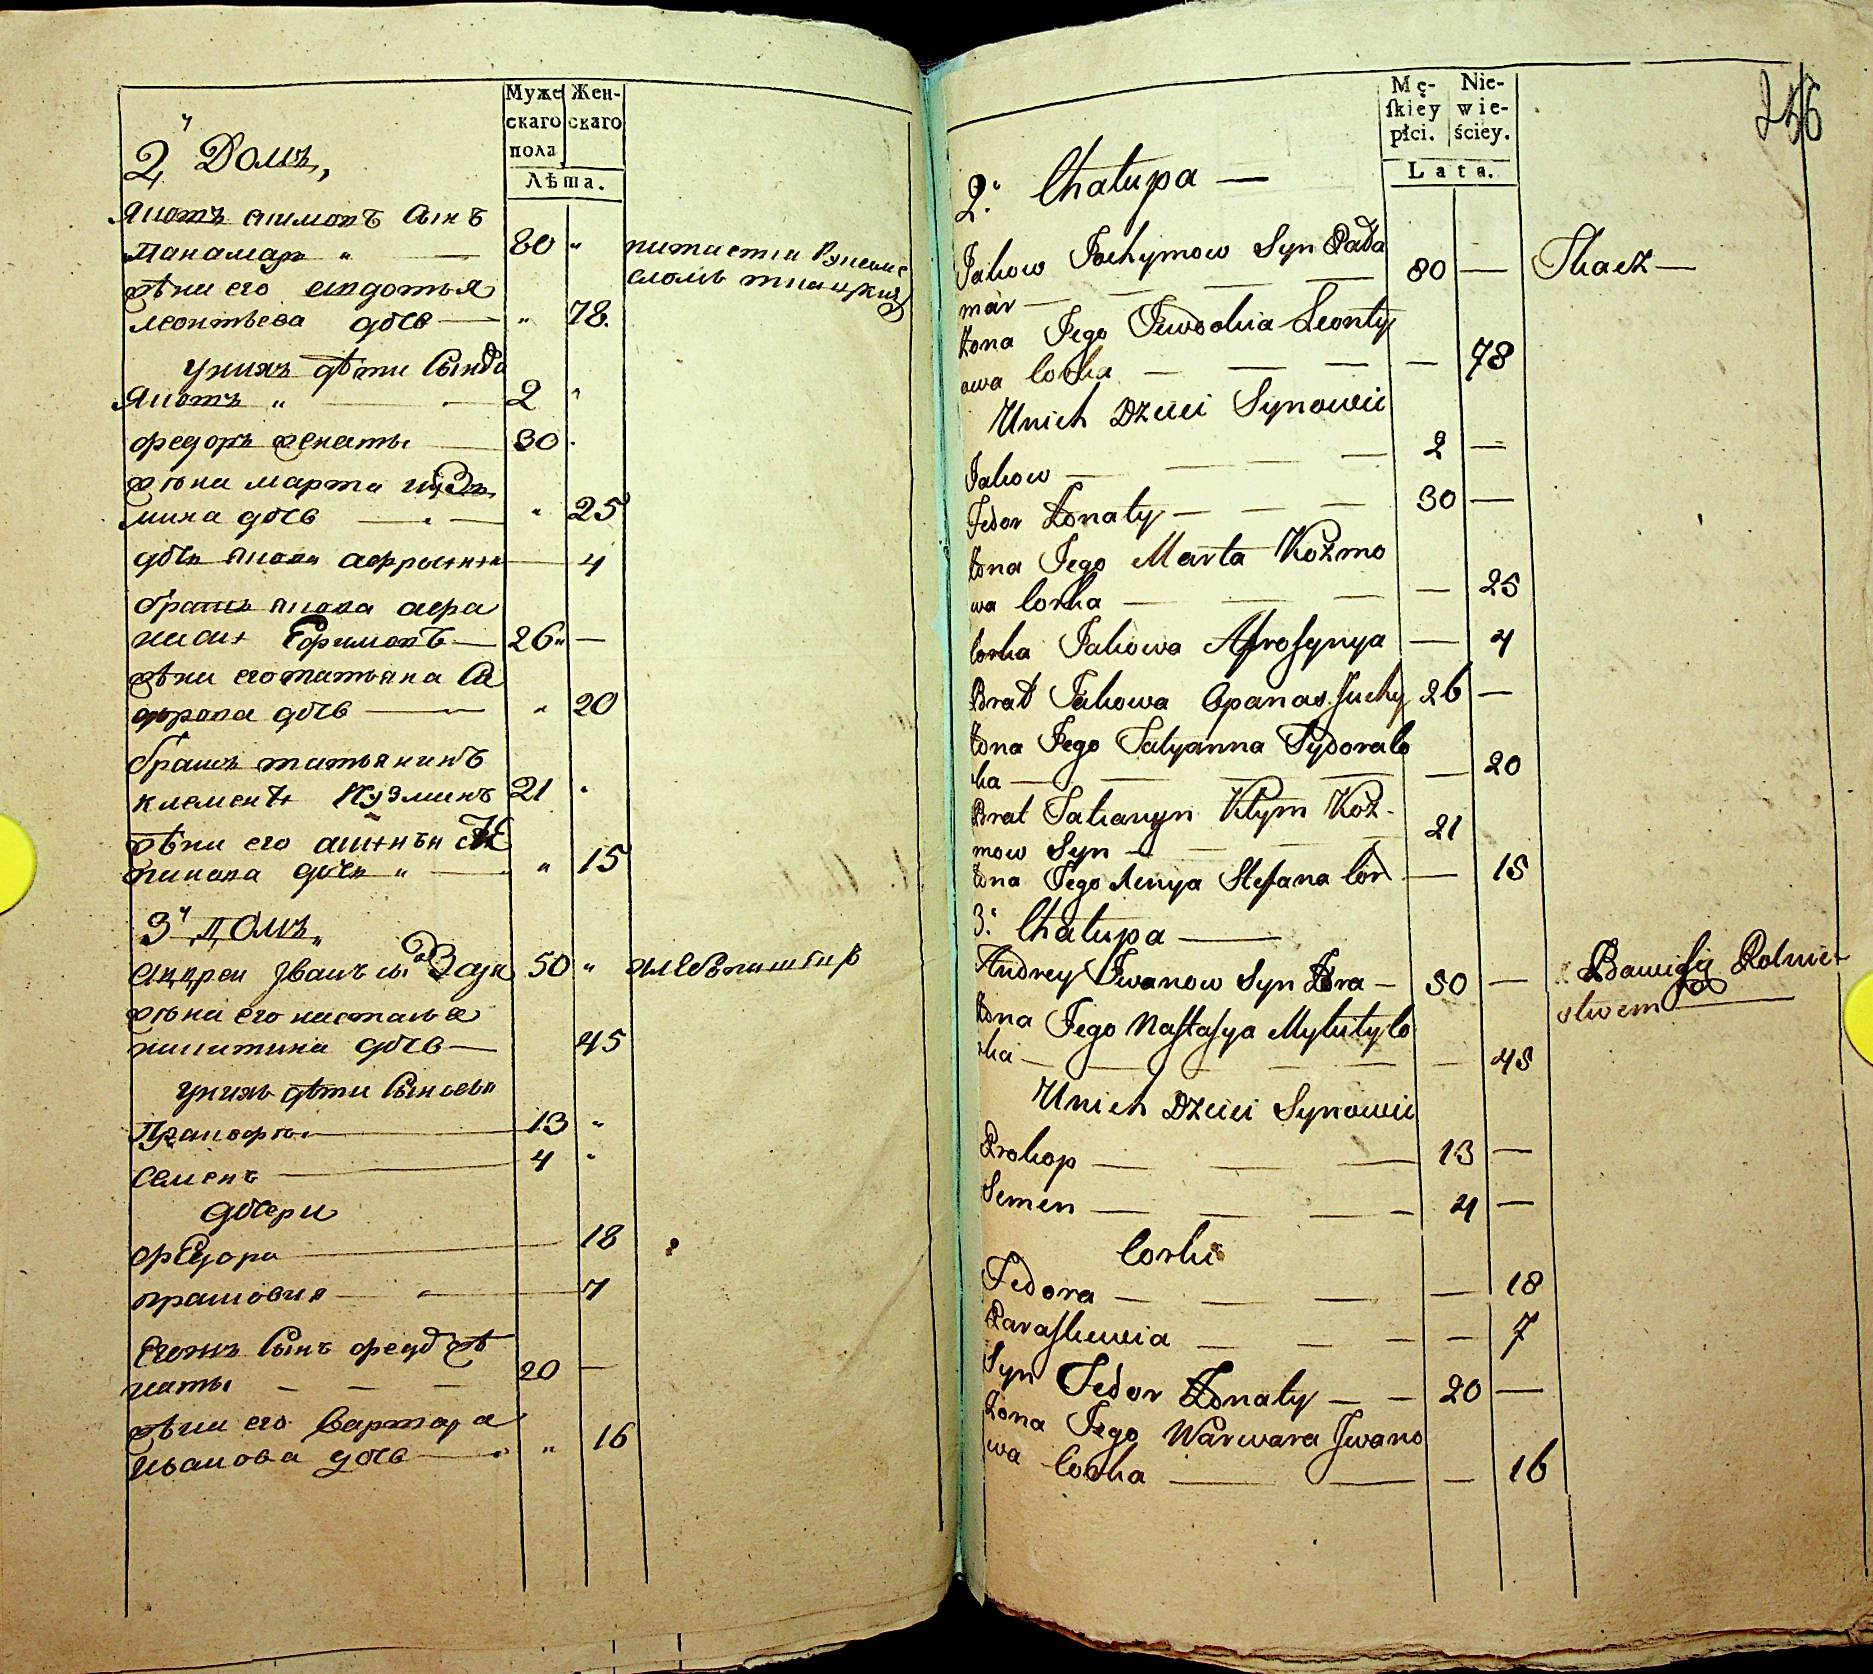 Муже Жен-
скаго скаго
пола
Лѣта.
2й Домъ,
Яковъ Якимовъ Сынъ
Панамар " — 80 "
жѣна его евдотья
леонтьева дочь — " 78.
у нихъ дѣти Сынова
Яковъ " — 2 "
федоръ женаты — 30
жѣна марта кузь
мина дочь — " 25
дочь якова афросиния — 4
братъ якова афа
насий Ефимовъ — 26 " —
жѣна его татьяна Си
дорова дочь — " 20
братъ татьянинъ
клементъ Кузминъ 21
жѣна его
дочь " — " 15
3й домъ
Андреи Иванъ сы 50 " хлебопашецъ
жѣна его настасья
никитина дочь — 45
у нихъ дѣти Сыновья
Прокофъ — 13 "
семенъ — 4
дочери
федора — 18
прасковия — 7
Егожъ Сынъ федор же
наты — — — 20 —
жѣна его Варвара
иванова дочь — " 16
256
Mę- Nie-
ſkiey wie-
płci. ściey.
Lata.
2. Chałupa —
Jakow Jochymow Syn Pada 80 — Tkacz —
mar —
Żona Jego Jewdokia Leonty
owa Corka — — — — 78
Unich Dzieci Synowie
Jakow — — — — 2 —
Fedor Żonaty — — — 30 —
Żona Jego Marta Kozmo
wa Corka — — — — 25
Corka Jakowa Afrosynya — 4
Brat Jakowa Apanas Juchy 26 —
Żona Jego Tatyanna Sydora Co
rka — — — — — 20
Brat Tatianyn Kłym Koz-
mow Syn — — — 21
Żona Jego Xenya Stefana Cor — 15
3. Chałupa —
Andrey Jwanow Syn — 50 — Bawiśię Rolnic
stwem —
Żona Jego Nastasya MykityCo
rka — — — — — — 45
Unich Dzieci Synowie
Prokop — — — 13 —
Semen — — — — 4 —
Corki
Fedora — — — — 18
Paraskewia — — — — 7
Syn Fedor Żonaty — — 20 —
Żona Jego Warwara Jwano
wa Corka — — — 16